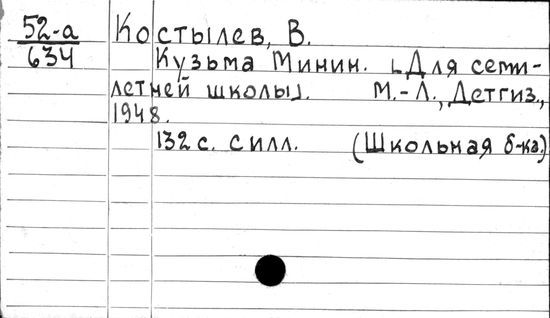 52-а
634
Костылев, В.
Кузьма Минин. [Для семи-
летней школы]. М.-Л., Детгиз,
1948.
132 с. с илл. (Школьная б-ка)